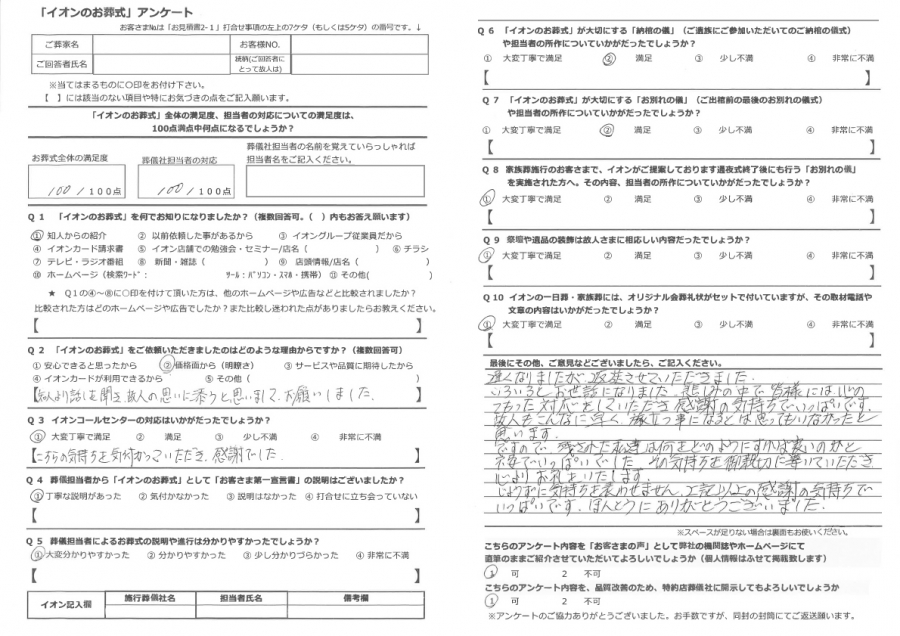 「イオンのお葬式」アンケート
お客さま№は「お見積書2-1」打合せ事項の左上の7ケタ（もしくは5ケタ）の番号です。↓
ご葬家名 お客様NO.
ご回答者氏名 続柄(ご回答者にとって故人は)
※当てはまるものに○印をお付け下さい。
【 】には該当のない項目や特にお気づきの点をご記入願います。
「イオンのお葬式」全体の満足度、担当者の対応についての満足度は、
100点満点中何点になるでしょうか？
葬儀社担当者の名前を覚えていらっしゃれば
お葬式全体の満足度 葬儀社担当者の対応 担当者名をご記入ください。
100/100点 100/100点
Q 1 「イオンのお葬式」を何でお知りになりましたか？（複数回答可。（ ）内もお答え願います）
① 知人からの紹介 ② 以前依頼した事があるから ③ イオングループ従業員だから
④ イオンカード請求書 ⑤ イオン店舗での勉強会・セミナー/店名（ ） ⑥ チラシ
⑦ テレビ・ラジオ番組 ⑧ 新聞・雑誌（ ） ⑨ 店頭情報/店名（ ）
⑩ ホームページ（検索ﾜｰﾄﾞ： ﾂｰﾙ：ﾊﾟｿｺﾝ・ｽﾏﾎ・携帯） ⑪ その他( )
★ Q1の④～⑧に○印を付けて頂いた方は、他のホームページや広告などと比較されましたか？
比較された方はどのホームページや広告でしたか？また比較し迷われた点がありましたらお教えください。
【 】
Q 2 「イオンのお葬式」をご依頼いただきましたのはどのような理由からですか？（複数回答可）
① 安心できると思ったから ② 価格面から（明瞭さ） ③ サービスや品質に期待したから
④ イオンカードが利用できるから ⑤ その他（ ）
【知人より話しを聞き、故人の思いに添うと思いまして、お願いしました。】
Q 3 イオンコールセンターの対応はいかがだったでしょうか？
① 大変丁寧で満足 ② 満足 ③ 少し不満 ④ 非常に不満
【こちらの気持ちを気付かっていただき、感謝でした。】
Q 4 葬儀担当者から「イオンのお葬式」として「お客さま第一宣言書」の説明はございましたか？
① 丁寧な説明があった ② 気付かなかった ③ 説明はなかった ④ 打合せに立ち会っていない
【 】
Q 5 葬儀担当者によるお葬式の説明や進行は分かりやすかったでしょうか？
① 大変分かりやすかった ② 分かりやすかった ③ 少し分かりづらかった ④ 非常に不満
【 】
イオン記入欄 施行葬儀社名 担当者氏名 備考欄
Q 6 「イオンのお葬式」が大切にする「納棺の儀」（ご遺族にご参加いただいてのご納棺の儀式）
や担当者の所作についていかがだったでしょうか？
① 大変丁寧で満足 ② 満足 ③ 少し不満 ④ 非常に不満
【 】
Q 7 「イオンのお葬式」が大切にする「お別れの儀」（ご出棺前の最後のお別れの儀式）
や担当者の所作についていかがだったでしょうか？
① 大変丁寧で満足 ② 満足 ③ 少し不満 ④ 非常に不満
【 】
Q 8 家族葬施行のお客さまで、イオンがご提案しております通夜式終了後にも行う「お別れの儀」
を実施された方へ。その内容、担当者の所作についていかがだったでしょうか？
① 大変丁寧で満足 ② 満足 ③ 少し不満 ④ 非常に不満
【 】
Q 9 祭壇や遺品の装飾は故人さまに相応しい内容だったでしょうか？
① 大変丁寧で満足 ② 満足 ③ 少し不満 ④ 非常に不満
【 】
Q 10 イオンの一日葬・家族葬には、オリジナル会葬礼状がセットで付いていますが、その取材電話や
文章の内容はいかがだったでしょうか？
① 大変丁寧で満足 ② 満足 ③ 少し不満 ④ 非常に不満
【 】
最後にその他、ご意見などございましたら、ご記入ください。
遅くなりましたが、返送させていただきました。
いろいろと、お世話になりました。悲しみの中で、皆様には心の
こもった対応をしていただき感謝の気持ちでいっぱいです。
故人もこんなに早く、旅立つ事になるとは思ってもいなかったと
思います。
ですので、残された私達は何をどのようにすれば良いのかと
不安でいっぱいでした。その気持ちを御親切に導いていただき、
心よりお礼をいたします。
じょうずに気持ちを表わせません。上記以上の感謝の気持ちで
いっぱいです。ほんとうにありがとうございました。
※スペースが足りない場合は裏面もお使いください。
こちらのアンケート内容を「お客さまの声」として弊社の機関誌やホームページにて
直筆のままご紹介させていただいてよろしいでしょうか（個人情報はふせて掲載致します）
1 可 2 不可
こちらのアンケート内容を、品質改善のため、特約店葬儀社に開示してもよろしいでしょうか
1 可 2 不可
※アンケートのご協力ありがとうございました。お手数ですが、同封の封筒にてご返送願います。